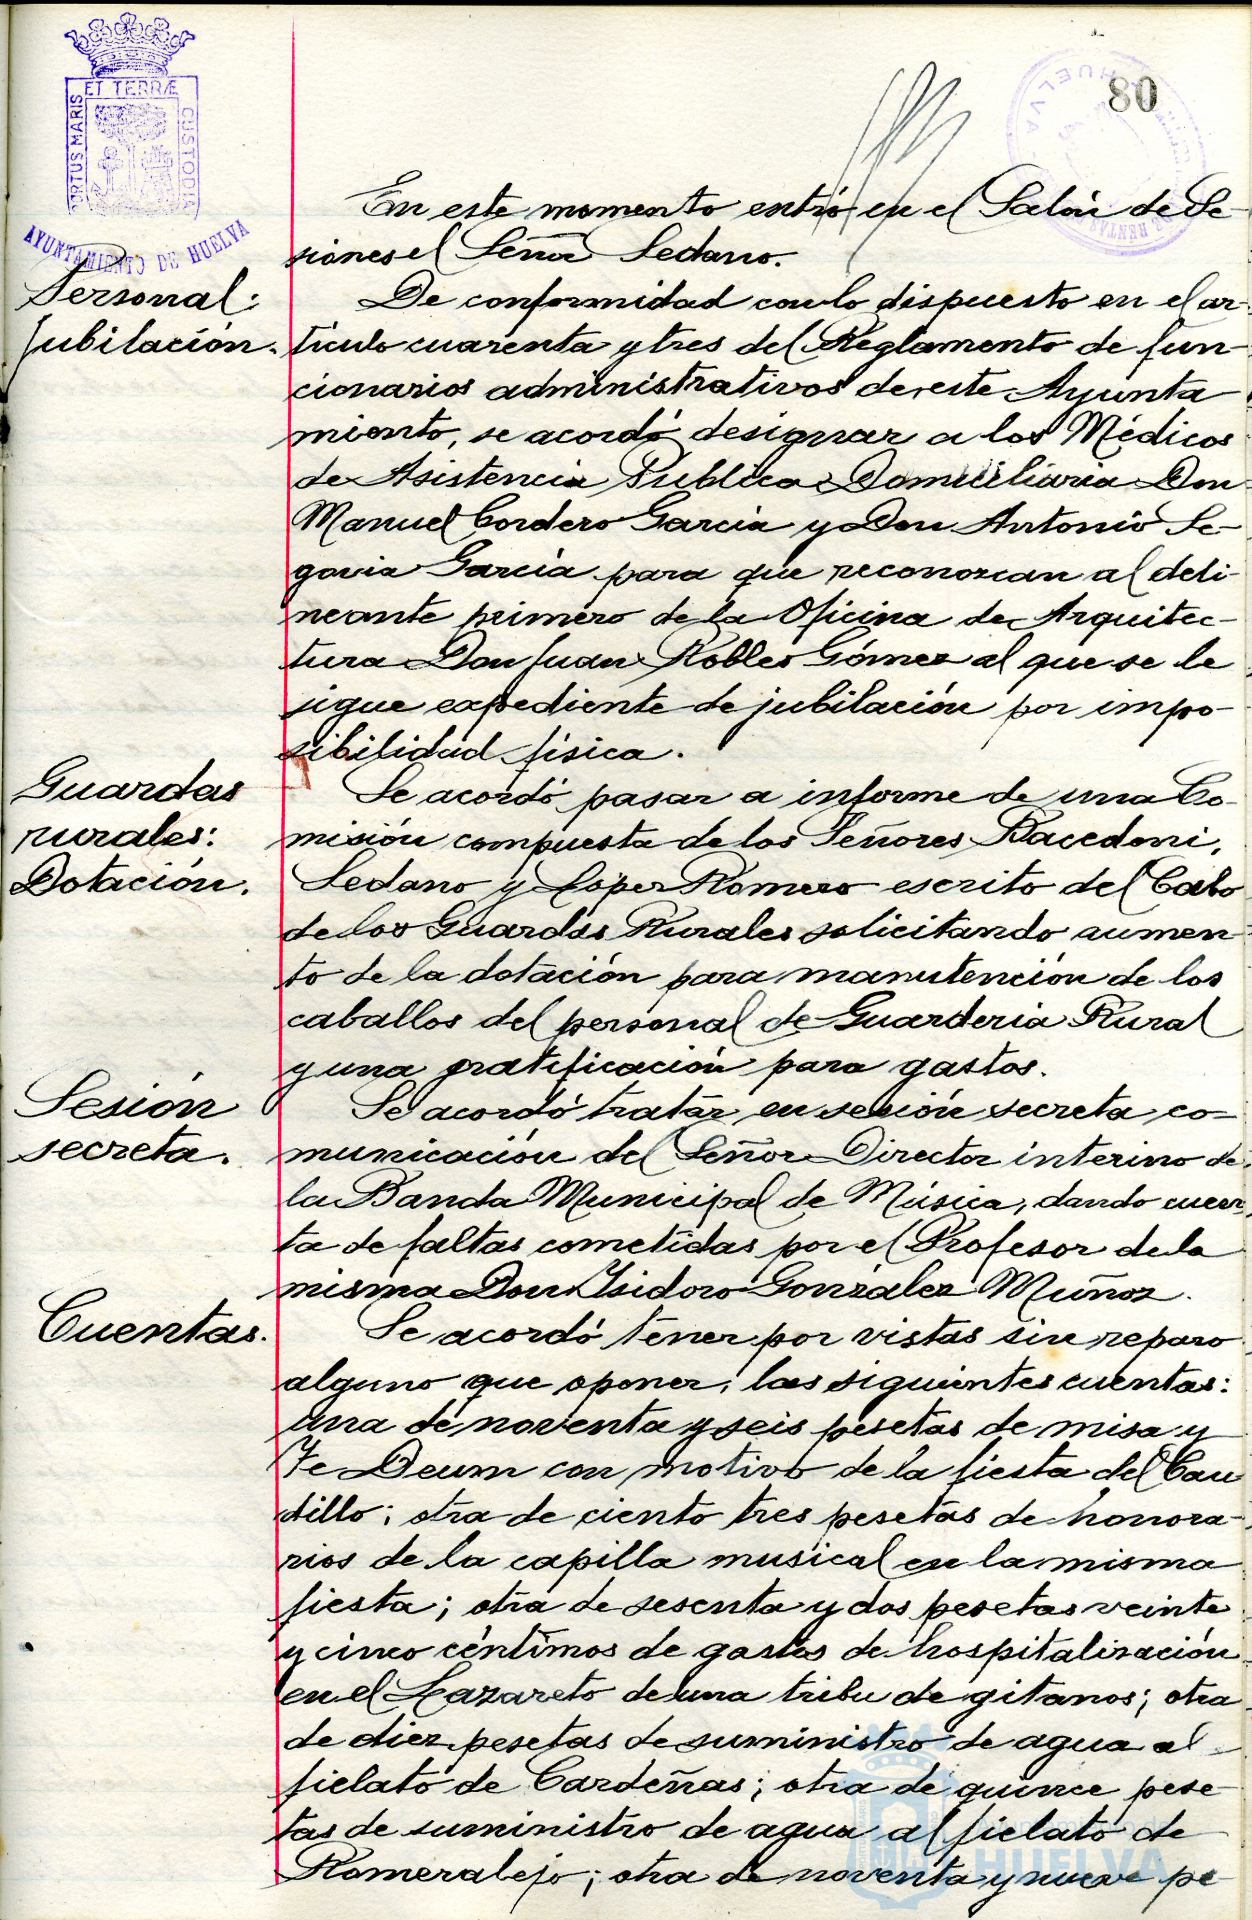 ET TERRÆ
PORTUS MARIS
CUSTODIA
AYUNTAMIENTO DE HUELVA
HUELVA
80
En este momento entró en el Salón de Se-
siones el Señor Sedano.
Personal:
Jubilación.
De conformidad con lo dispuesto en el ar-
tículo cuarenta y tres del Reglamento de fun-
cionarios administrativos de este Ayunta
miento, se acordó designar a los Médicos
de Asistencia Publica Domiciliaria Don
Manuel Cordero García y Don Antonio Se-
govia García para que reconozcan al deli-
neante primero de la Oficina de Arquitec-
tura Don Juan Robles Gómez al que se le
sigue expediente de jubilación por impo-
sibilidad física.
Guardas
rurales:
Dotación.
Se acordó pasar a informe de una Co-
misión compuesta de los Señores Bacedoni,
Sedano y López Romero escrito del Cabo
de los Guardas Rurales solicitando aumen-
to de la dotación para manutención de los
caballos del personal de Guarderia Rural
y una gratificación para gastos.
Sesión
secreta.
Se acordó tratar en sesión secreta co-
municación del Señor Director interino de
la Banda Municipal de Música, dando cuen-
ta de faltas cometidas por el Profesor de la
misma Don Isidoro González Muñoz.
Cuentas.
Se acordó tener por vistas sin reparo
alguno que oponer, las siguientes cuentas:
una de noventa y seis pesetas de misa y
Te Deum con motivo de la fiesta del Cau
dillo; otra de ciento tres pesetas de honora-
rios de la capilla musical en la misma
fiesta; otra de sesenta y dos pesetas veinte
y cinco céntimos de gastos de hospitalización
en el Lazareto de una tribu de gitanos; otra
de diez pesetas de suministro de agua al
fielato de Cardeñas; otra de quince pese-
tas de suministro de agua al fielato de
Romeralejo; otra de noventa y nueve pe-
HUELVA